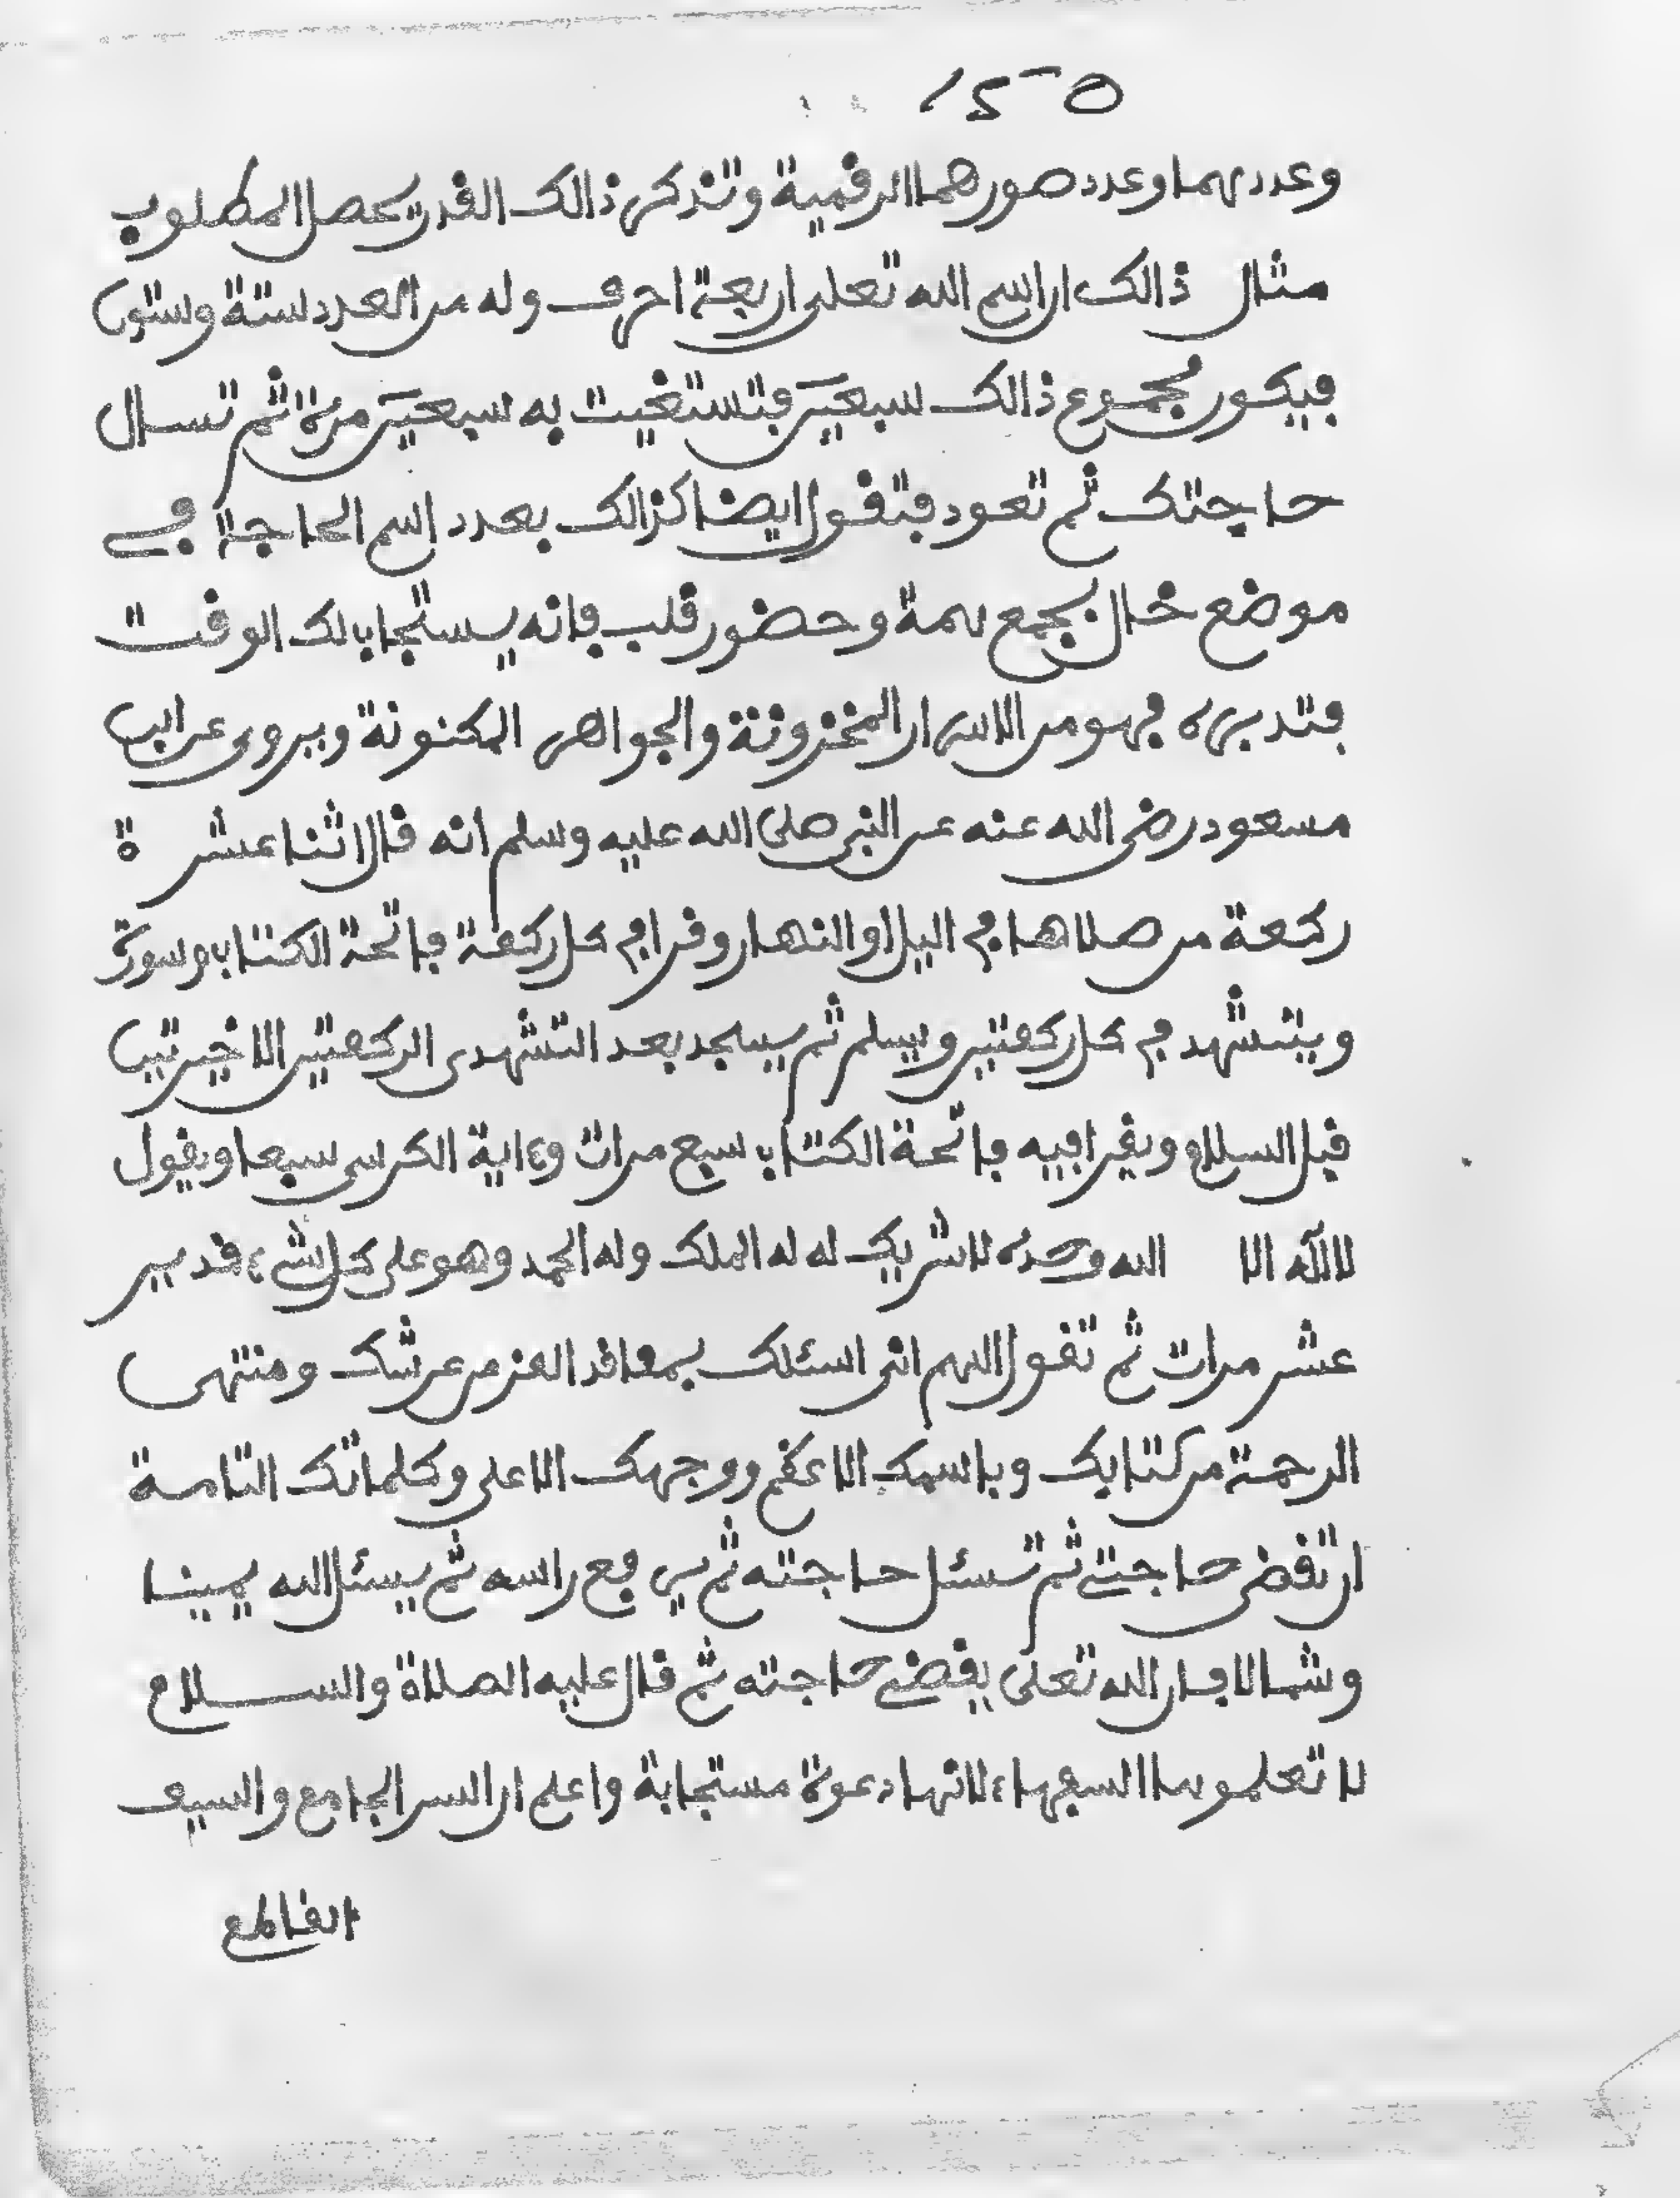 وعددهما وعدد صورهما الرقمية وتذكر ذالك القدر يحصل المطلوب
مثال ذالك ان اسم الله تعلى اربعة احرف وله من العدد ستة وستون
فيكون مجموع ذالك سبعين فتستغيث به سبعين مرة ثم تسال
حاجتك ثم تعود فتقول ايضا كذالك بعدد اسم الحاجة في
موضع خال بجمع همة وحضور قلب فانه يستجاب لك الوقت
فتدبره فهو من الاسرار المخزونة والجواهر المكنونة ويروى عن ابن
مسعود رضى الله عنه عن النبى صلى الله عليه وسلم انه قال اثنا عشرة
ركعة من صلاها في اليل او النهار وقرا في كل ركعة فاتحة الكتاب وسورة
ويتشهد في كل ركعتين ويسلم ثم يسجد بعد التشهد من الركعتين الاخيرتين
قبل السلام ويقرا فيه فاتحة الكتاب سبع مرات وءاية الكرسى سبعا ويقول
لا اله الا الله وحده لا شريك له له الملك وله الحمد وهو على كل شىء قدير
عشر مرات ثم تقول اللهم انى اسئلك بمعاقد العز من عرشك ومنتهى
الرحمة من كتابك وباسمك الاعظم ووجهك الاعلى وكلماتك التامة
ان تقضى حاجتي ثم تسئل حاجته ثم يرفع راسه ثم يسئل الله يمينا
وشمالا فان الله تعلى يقضي حاجته ثم قال عليه الصلاة والسلام
لا تعلموها السفهاء لانها دعوة مستجابة واعلم ان السر الجامع والسيف
القاطع